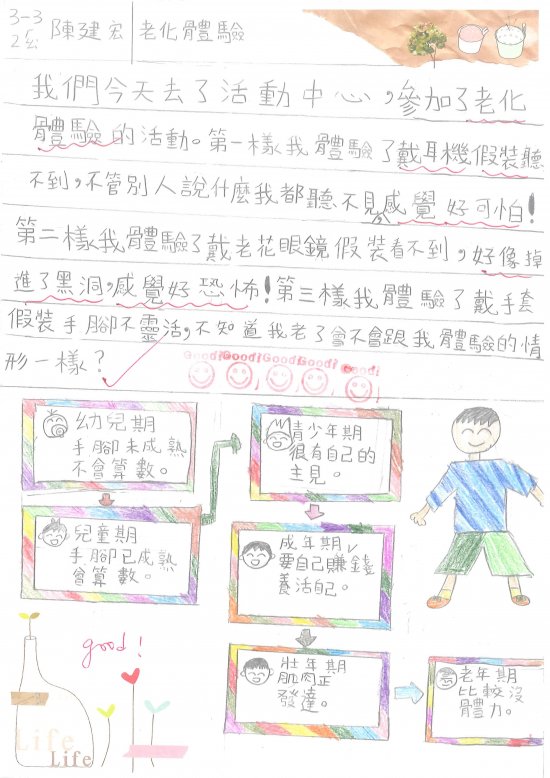 3-3
2號 陳建宏 老化體驗
我們今天去了活動中心,參加了老化
體驗的活動。第一樣我體驗了戴耳機假裝聽
不到,不管別人說什麼我都聽不見感覺好可怕!
第二樣我體驗了戴老花眼鏡假裝看不到,好像掉
進了黑洞,感覺好恐怖!第三樣我體驗了戴手套
假裝手腳不靈活,不知道我老了會不會跟我體驗的情
形一樣?
Good! Good! Good! Good! Good!
幼兒期
手腳未成熟
不會算數。
兒童期
手腳已成熟
會算數。
青少年期
很有自己的
主見。
成年期
要自己賺錢
養活自己。
壯年期
肌肉正
發達。
老年期
比較沒
體力。
good!
Life
Life